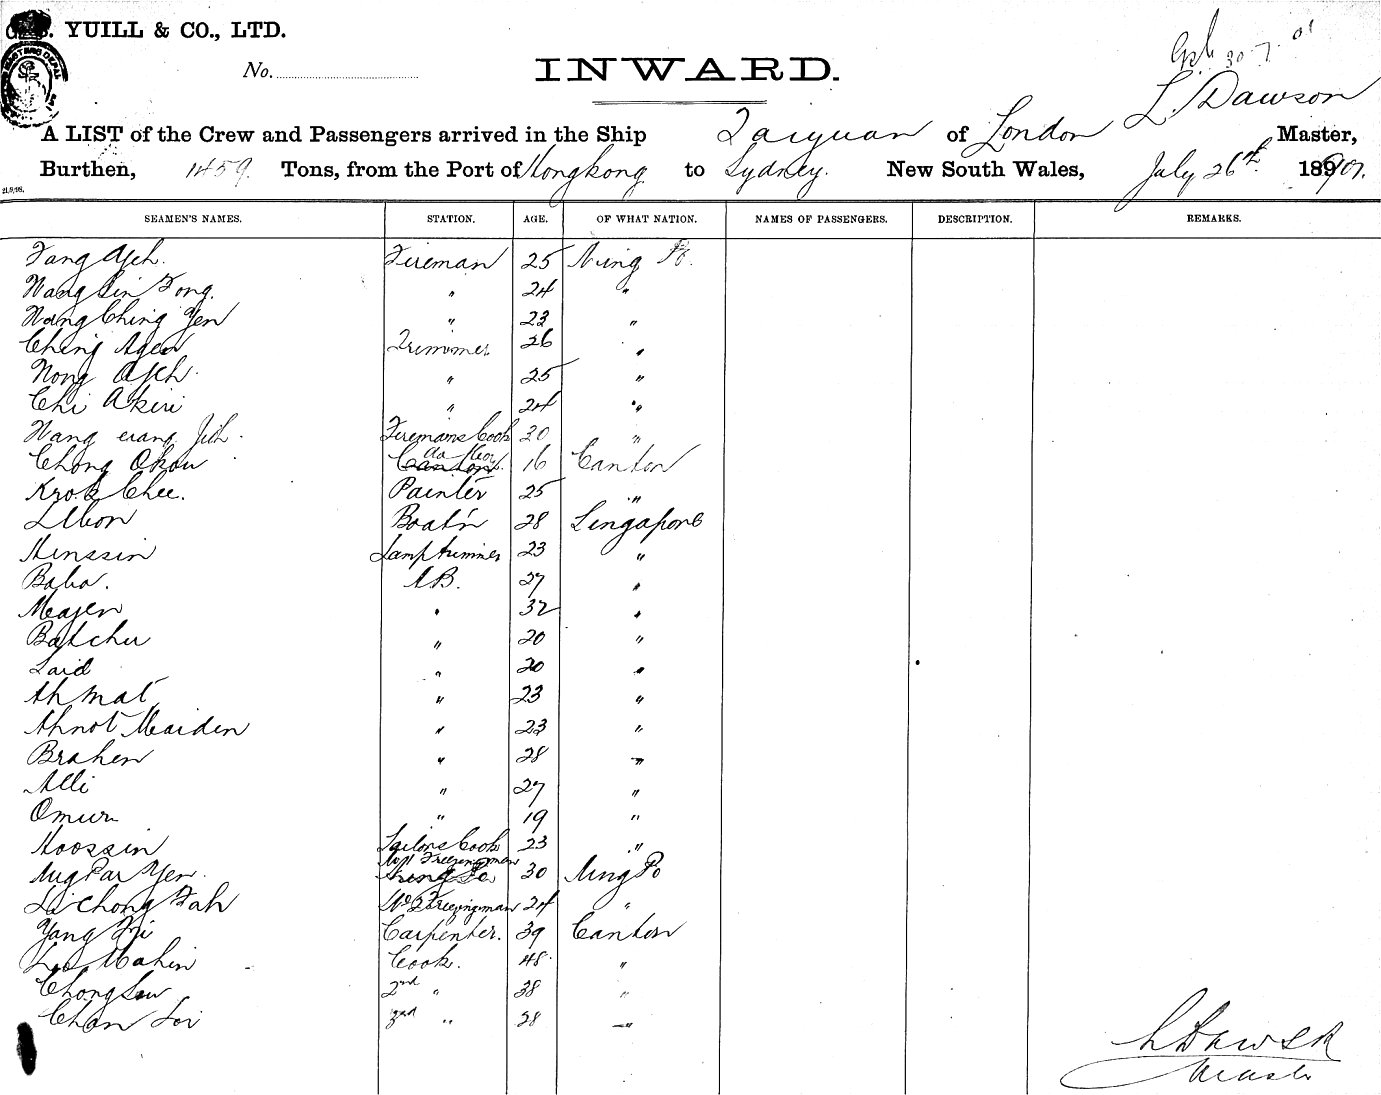 YUILL & CO., LTD.
No.
30.7.01
INWARD.
L. Dawson
A LIST of the Crew and Passengers arrived in the Ship Taiyuan of London Master,
Burthen, 1459 Tons, from the Port of Hongkong to Sydney. New South Wales, July 26th 1901.
21/9/98.
SEAMEN'S NAMES. STATION. AGE. OF WHAT NATION. NAMES OF PASSENGERS. DESCRIPTION. REMARKS.
Fang Fireman 25 Ning Po.
Wang Sin Fong. " 24 "
Wang Ching Yen " 23 "
Ching Trimmer 26 "
Nong " 25 "
Chi Akiri " 24 "
Wang Firemans Cook 20 "
Chong Okou do 16 Canton
Krok Chee. Painter 25 "
Boat'n 28 Singapore
Hinssin Lamp trimmer 23 "
Baba. AB. 27 "
Majen " 32 "
Batchu " 20 "
Said " 20 "
Ahmat " 23 "
Ahnot Maiden " 23 "
Brahen " 28 "
Alli " 27 "
Omur " 19 "
Hoossin Sailors Cook 23 "
Yen No 1 Freezingman 30 Ning Po
Li Chong Fah No 2 Freezingman 24 "
Yang Carpenter. 39 Canton
Mahin Cook. 48 "
Chong 2nd " 38 "
Chan Loi 3rd " 28 "
L Dawson
Master